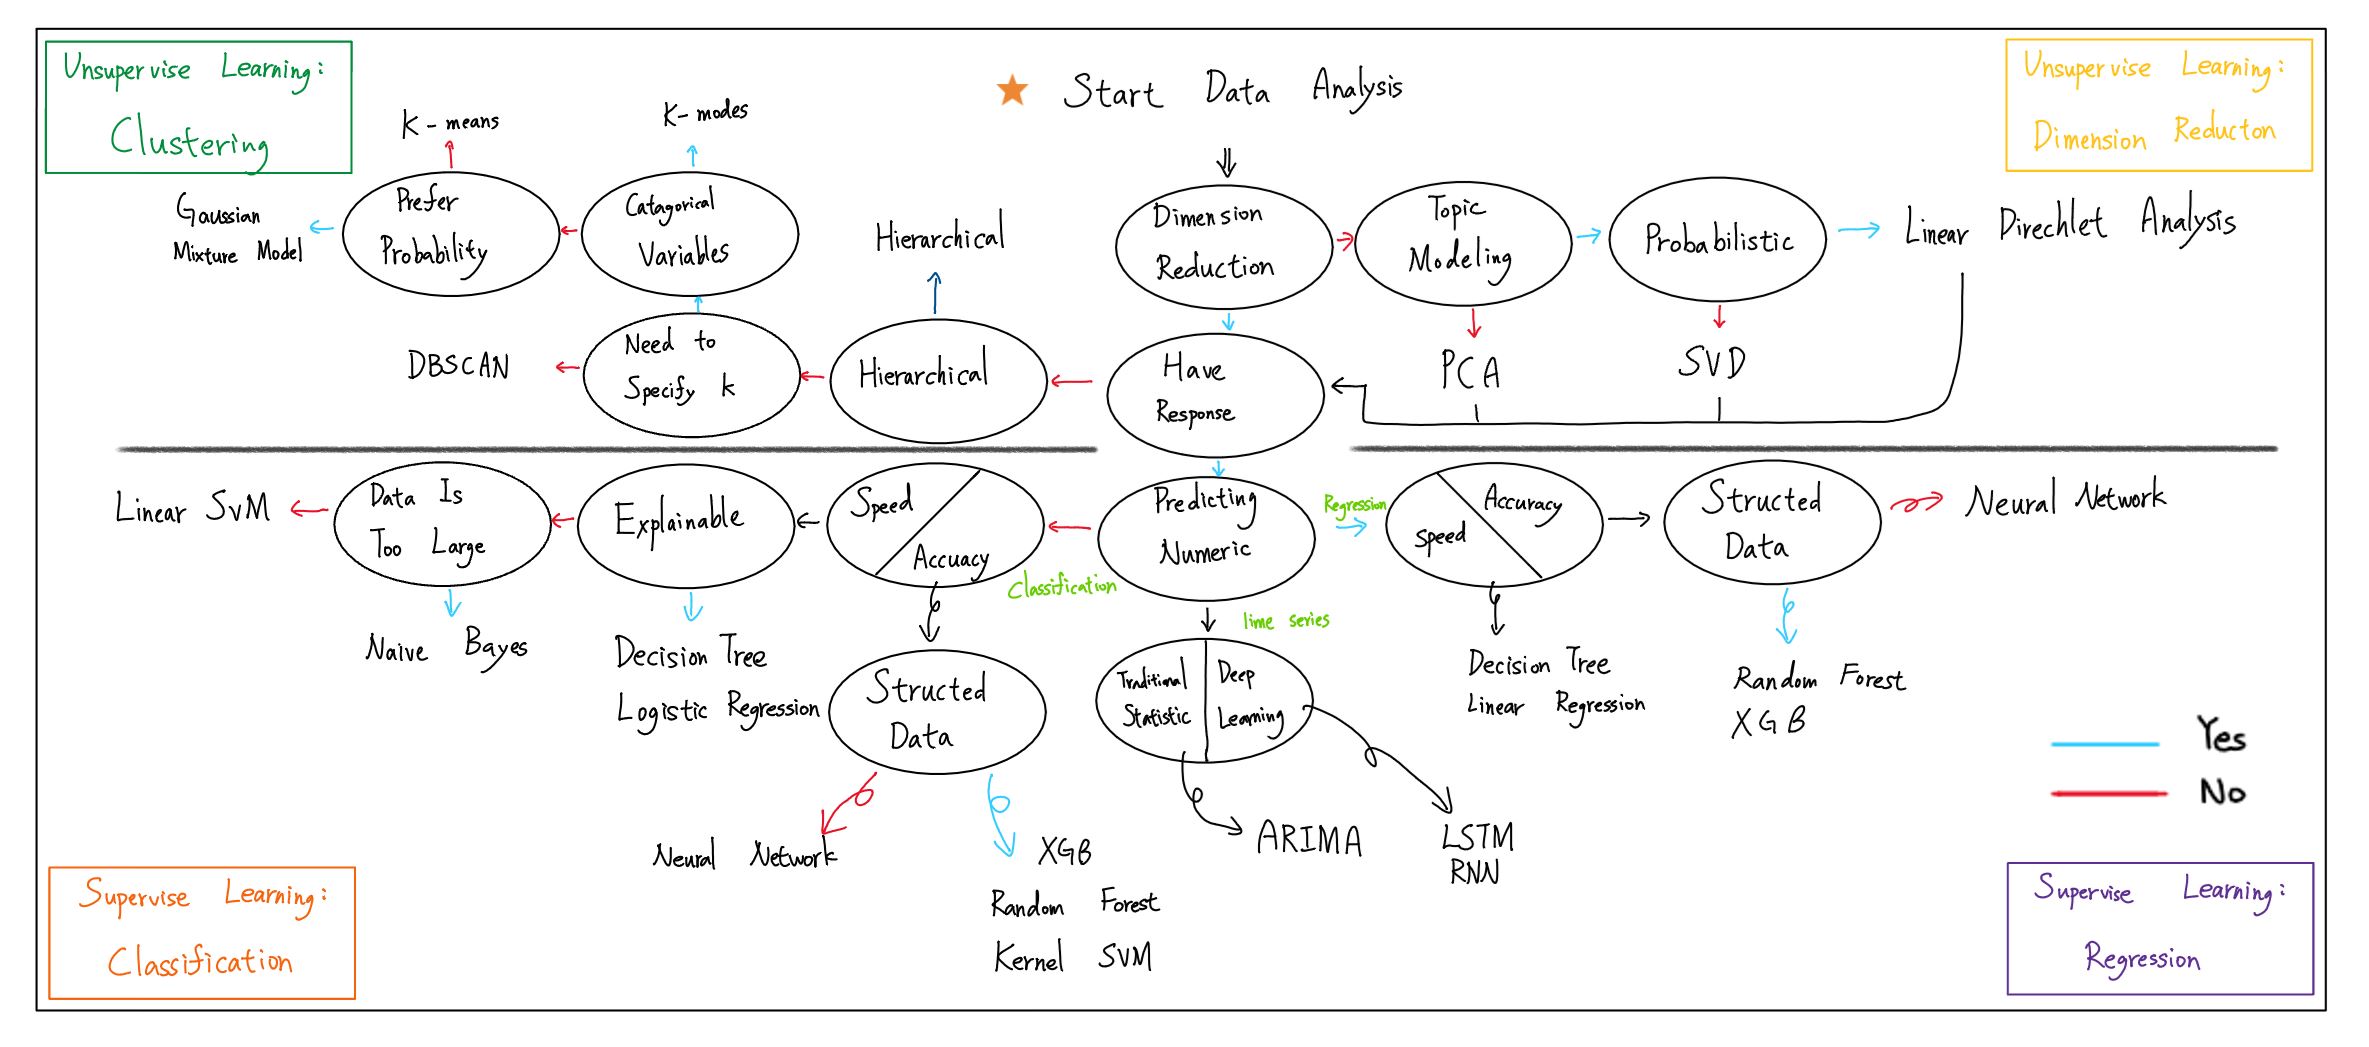 Unsupervise Learning:
Clustering
★ Start Data Analysis
Unsupervise Learning:
Dimension Reducton
K-means
K-modes
Gaussian
Mixture Model
Prefer
Probability
Catagorical
Variables
Hierarchical
Dimension
Reduction
Topic
Modeling
Probabilistic
Linear Direchlet Analysis
DBSCAN
Need to
Specify k
Hierarchical
Have
Response
PCA
SVD
Linear SVM
Data Is
Too Large
Explainable
Speed
Accuacy
Classification
Predicting
Numeric
Regression
Accuracy
Speed
Structed
Data
Neural Network
Naive Bayes
Decision Tree
Logistic Regression
Structed
Data
time series
Traditional
Statistic
Deep
Learning
Decision Tree
Linear Regression
Random Forest
XGB
Yes
No
Neural Network
XGB
Random Forest
Kernel SVM
ARIMA
LSTM
RNN
Supervise Learning:
Classification
Supervise Learning:
Regression